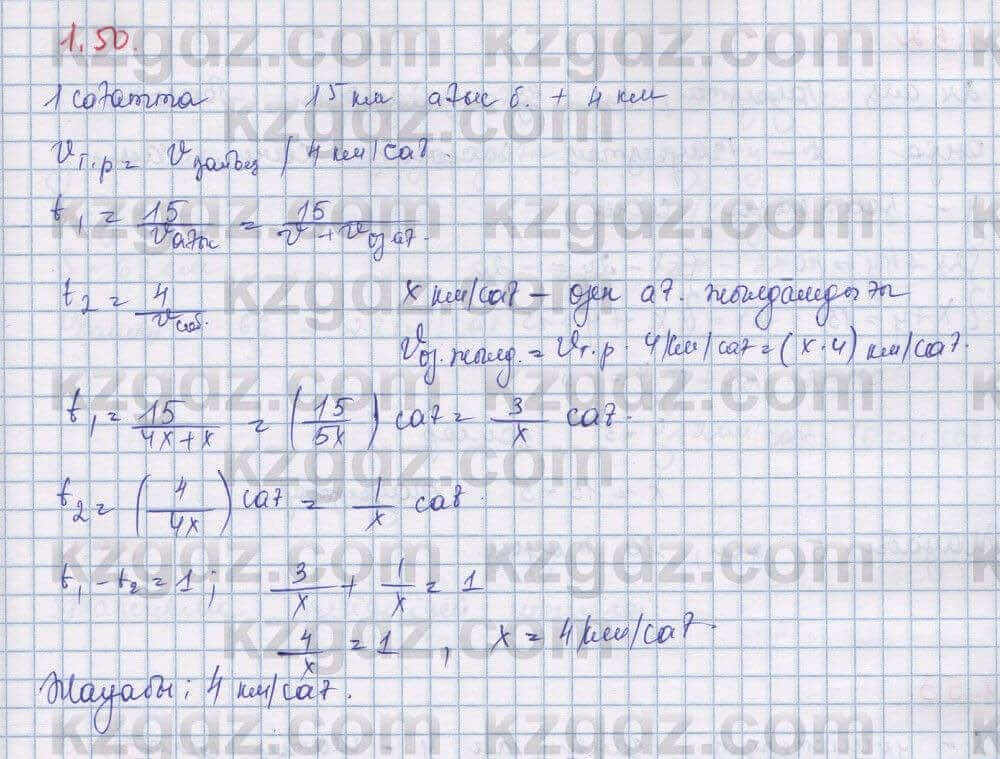 1.50.
1 сағатта 15 км ағыс б. + 4 км
v т.р = v 4 км/сағ.
t₁ = 15/v ағыс = 15/v + v өз ағ.
t₂ = 4/v
x км/сағ – өзен ағ. жылдамдығы
v өз.жылд. = v т.р · 4 км/сағ = (x · 4) км/сағ.
t₁ = 15/4x+x = (15/5x) сағ = 3/x сағ.
t₂ = (4/4x) сағ = 1/x сағ.
t₁ - t₂ = 1; 3/x + 1/x = 1
4/x = 1, x = 4 км/сағ.
Жауабы: 4 км/сағ.
kzgdz.com